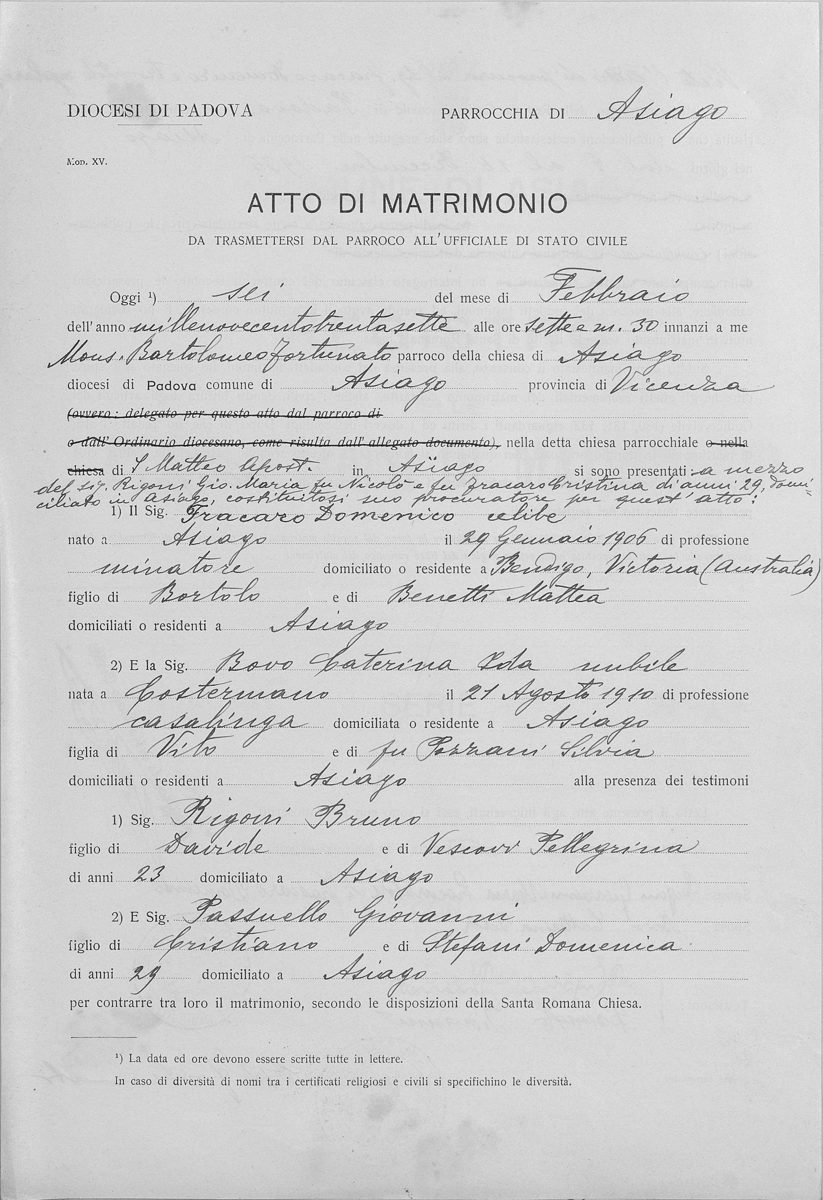 DIOCESI DI PADOVA
PARROCCHIA DI Asiago
Mod. XV.
ATTO DI MATRIMONIO
DA TRASMETTERSI DAL PARROCO ALL'UFFICIALE DI STATO CIVILE
Oggi ¹) sei del mese di Febbraio
dell'anno millenovecentotrentasette alle ore sette a m. 30 innanzi a me
Mons. Bartolomeo Fortunato parroco della chiesa di Asiago
diocesi di Padova comune di Asiago provincia di Vicenza
(ovvero: delegato per questo atto dal parroco di
o dall'Ordinario diocesano, come risulta dall'allegato documento), nella detta chiesa parrocchiale o nella
chiesa di S Matteo Apost. in Asiago si sono presentati: a mezzo
del sig. Rigoni Gio. Maria fu Nicolò e fu Fracaro Cristina di anni 29, domi-
ciliato in Asiago, costituitosi suo procuratore per quest'atto:
1) Il Sig. Fracaro Domenico celibe
nato a Asiago il 29 Gennaio 1906 di professione
minatore domiciliato o residente a Bendigo, Victoria (Australia)
figlio di Bortolo e di Benetti Mattea
domiciliati o residenti a Asiago
2) E la Sig. Bovo Caterina Ida nubile
nata a Costermano il 21 Agosto 1910 di professione
casalinga domiciliata o residente a Asiago
figlia di Vito e di fu Pozzani Silvia
domiciliati o residenti a Asiago alla presenza dei testimoni
1) Sig. Rigoni Bruno
figlio di Davide e di Vescovi Pellegrina
di anni 23 domiciliato a Asiago
2) E Sig. Passuello Giovanni
figlio di Cristiano e di Stefani Domenica
di anni 29 domiciliato a Asiago
per contrarre tra loro il matrimonio, secondo le disposizioni della Santa Romana Chiesa.
¹) La data ed ore devono essere scritte tutte in lettere.
In caso di diversità di nomi tra i certificati religiosi e civili si specifichino le diversità.